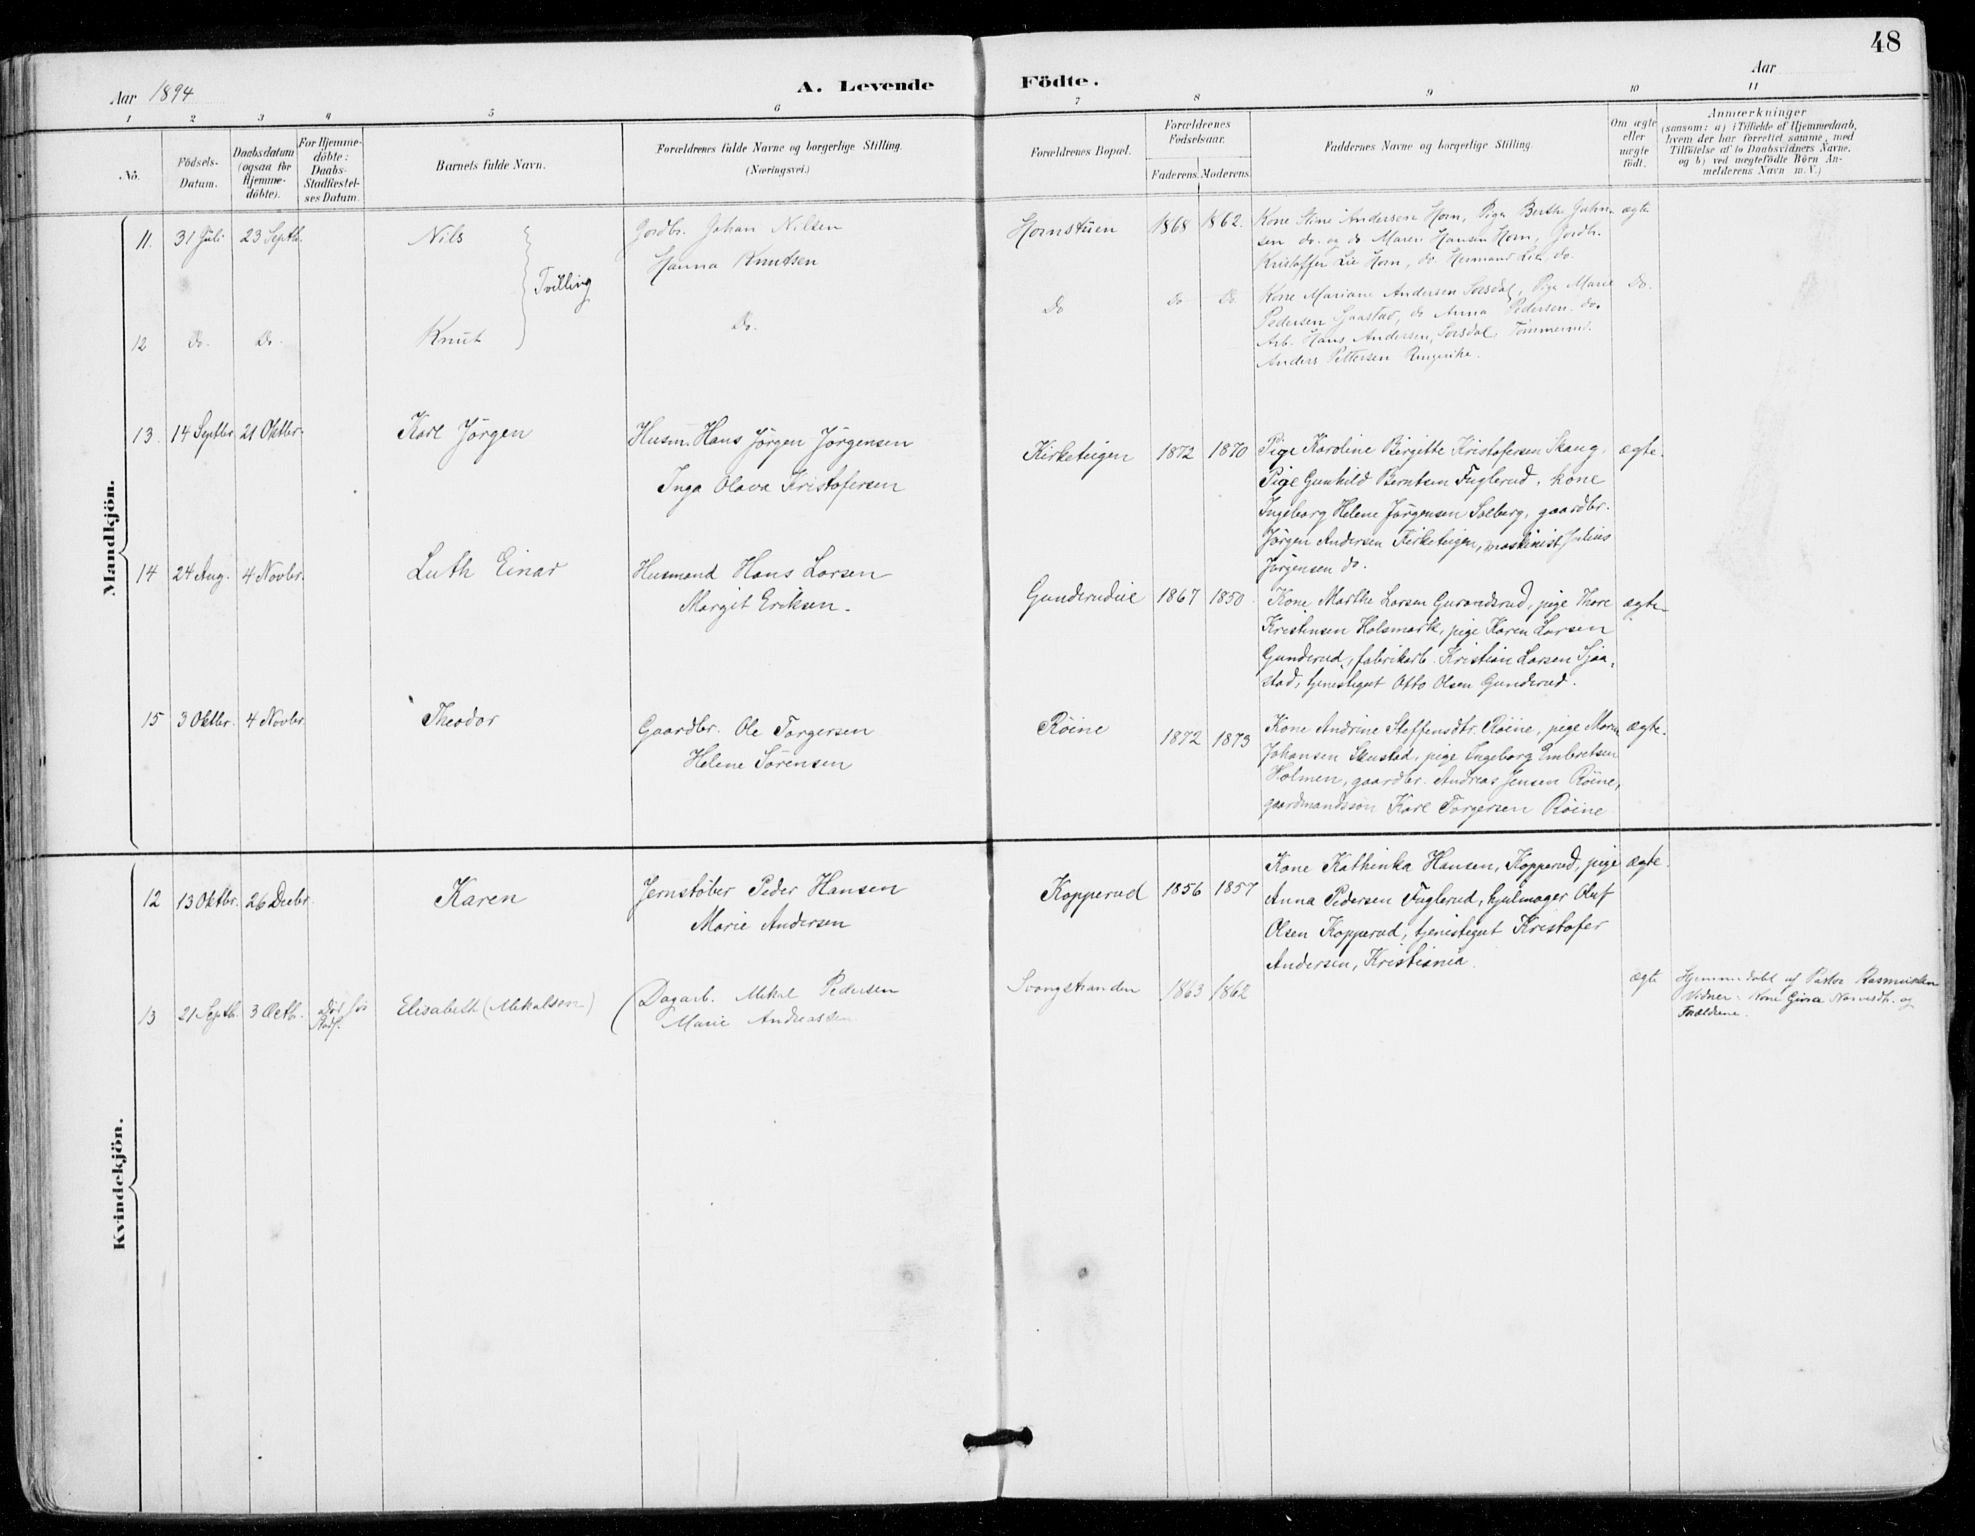 48
Aar 1894
A. Levende Födte.
Aar
1 2 3 4 5 6 7 8 9 10 11
No.
Födsels-Datum.
Daabsdatum (ogsaa för Hjemme-döbte).
For Hjemme-döbte: Daabs-Stadfæstel-ses Datum.
Barnets fulde Navn.
Forældrenes fulde Navne og borgerlige Stilling. (Næringsvei.)
Forældrenes Bopæl.
Forældrenes Födselsaar.
Faderens. Moderens.
Faddernes Navne og borgerlige Stilling.
Om ægte eller uægte födt.
Anmærkninger
(saasom: a) i Tilfælde af Hjemmedaab,
hvem der har forrettet samme, med
Tilföielse af to Daabsvidners Navne,
og b) ved uægtefödte Börn An-
melderens Navn m. V.)
Mandkjön.
11. 31 Juli 23 Septb. Nils
Tvilling
Jordbr. Johan Nilsen
Hanna Knutsen
Hornstuen 1868 1862.
Kone Stine Andersen Horn, Pige Berthe Juhn-
sen do. og do Maren Hansen Horn, Jordbr.
Kristoffer Lie Horn, do Hermand Lie, do.
ægte
12 Do. Do. Knut
Do.
Do Do Do
Kone Mariane Andersen Sorsdal, Pige Marie
Pedersen Gaastad, do Anna Pedersen do.
Arb. Hans Andersen, Sorsdal, Tömmerm.
Anders Pettersen Ringerike.
Do.
13. 14 Septbr. 21 Oktbr. Karl Jörgen
Husm. Hans Jörgen Jörgensen
Inga Olava Kristofersen
Kirketeigen 1872 1870
Pige Karoline Birgitte Kristofersen Skaug,
Pige Gunhild Berntsen Fuglerud, kone
Ingeborg Helene Jörgensen Solberg, gaardbr.
Jörgen Andersen Kirketeigen, maskinist Julius
Jörgensen do.
ægte.
14 24 Aug. 4 Novbr. Luth Einar
Husmand Hans Larsen
Margit Eriksen.
Gunderudeie 1867 1850.
Kone Marthe Larsen Gunderud, pige Thore
Kristensen Holsmark, pige Karen Larsen
Gunderud, fabrikarb. Kristian Larsen Sjaa-
stad, tjenestegut Otto Olsen Gunderud.
ægte
15 3 Oktbr. 4 Novbr. Theodor
Gaardbr. Ole Torgersen
Helene Sörensen
Röine 1872 1873
Kone Andrine Steffensdtr. Röine, pige Maria
Johansen Skustad, pige Ingeborg Embretsen
Holmen, gaardbr. Andreas Jensen Röine,
gaardmandssön Karl Torgersen Röine
ægte.
Kvindekjön.
12 13 Oktbr. 26 Decbr. Karen
Jernstöber Peder Hansen
Marie Andersen
Kopperud 1856 1857
Kone Kathinka Hansen, Kopperud, pige
Anna Pedersen Fuglerud, hjulmager Oluf
Olsen Kopperud, tjenestegut Kristofer
Andersen, Kristiania.
ægte.
13 21 Septb. 3 Octb. död för Stadf. Elisabeth (Mekalsen)
Dagarb. Mekal Pedersen
Marie Andreassen
Svangstranden 1863 1862
ægte
Hjemmedöbt af Pastor Rasmussen
Vidner: Kone Gina Narvesdt. og
Forældrene.